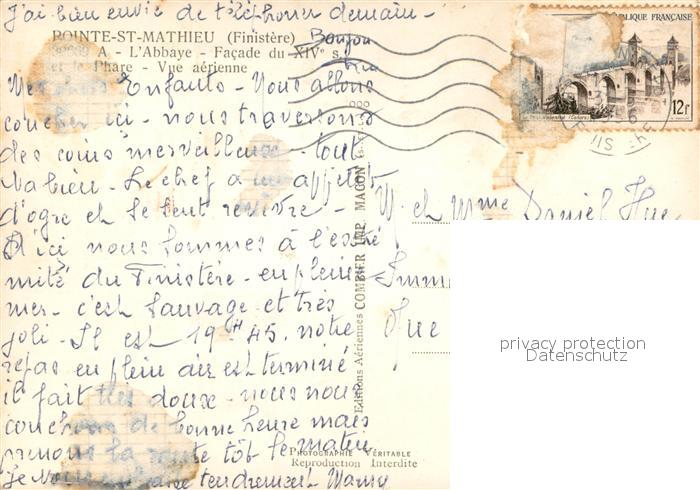 J'ai bien envie de téléphoner demain -
POINTE-ST-MATHIEU (Finistère)
A - L'Abbaye - Façade du XIVe s.
et le Phare - Vue aérienne
RÉPUBLIQUE FRANÇAISE
12F
Enfants - Nous allons
coucher ici - nous traversons
des coins merveilleux - tout
va bien - Le chef a un appétit
d'ogre et se sent revivre -
D'ici nous sommes à l'extré
mité du Finistère - en pleine
mer - c'est sauvage et très
joli - Il est 19H 45. notre
repas en plein air est terminé
il fait très doux - nous nous
couchons de bonne heure mais
prenons la route tôt le matin
Je vous tendrement
M. et Mme Daniel Hue
Imm
Rue
Editions Aériennes COMBIER IMP. MACON
PHOTOGRAPHIE VÉRITABLE
Reproduction Interdite
privacy protection
Datenschutz